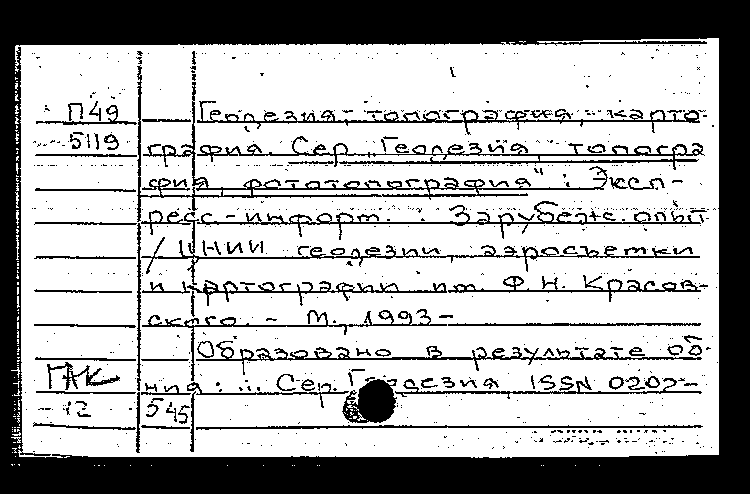 П49 Геодезия, топография, карто-
5119 графия. Сер. „Геодезия, топогра
фия, фототопография" : Эксп-
ресс-информ. : Зарубеж. опыт
/ ЦНИИ геодезии, аэросъемки
и картографии им. Ф.Н. Красов-
ского. - М., 1993-
Образовано в результате об-
ГАК ния: ... Сер. Геодезия, ISSN 0202-
-12 545